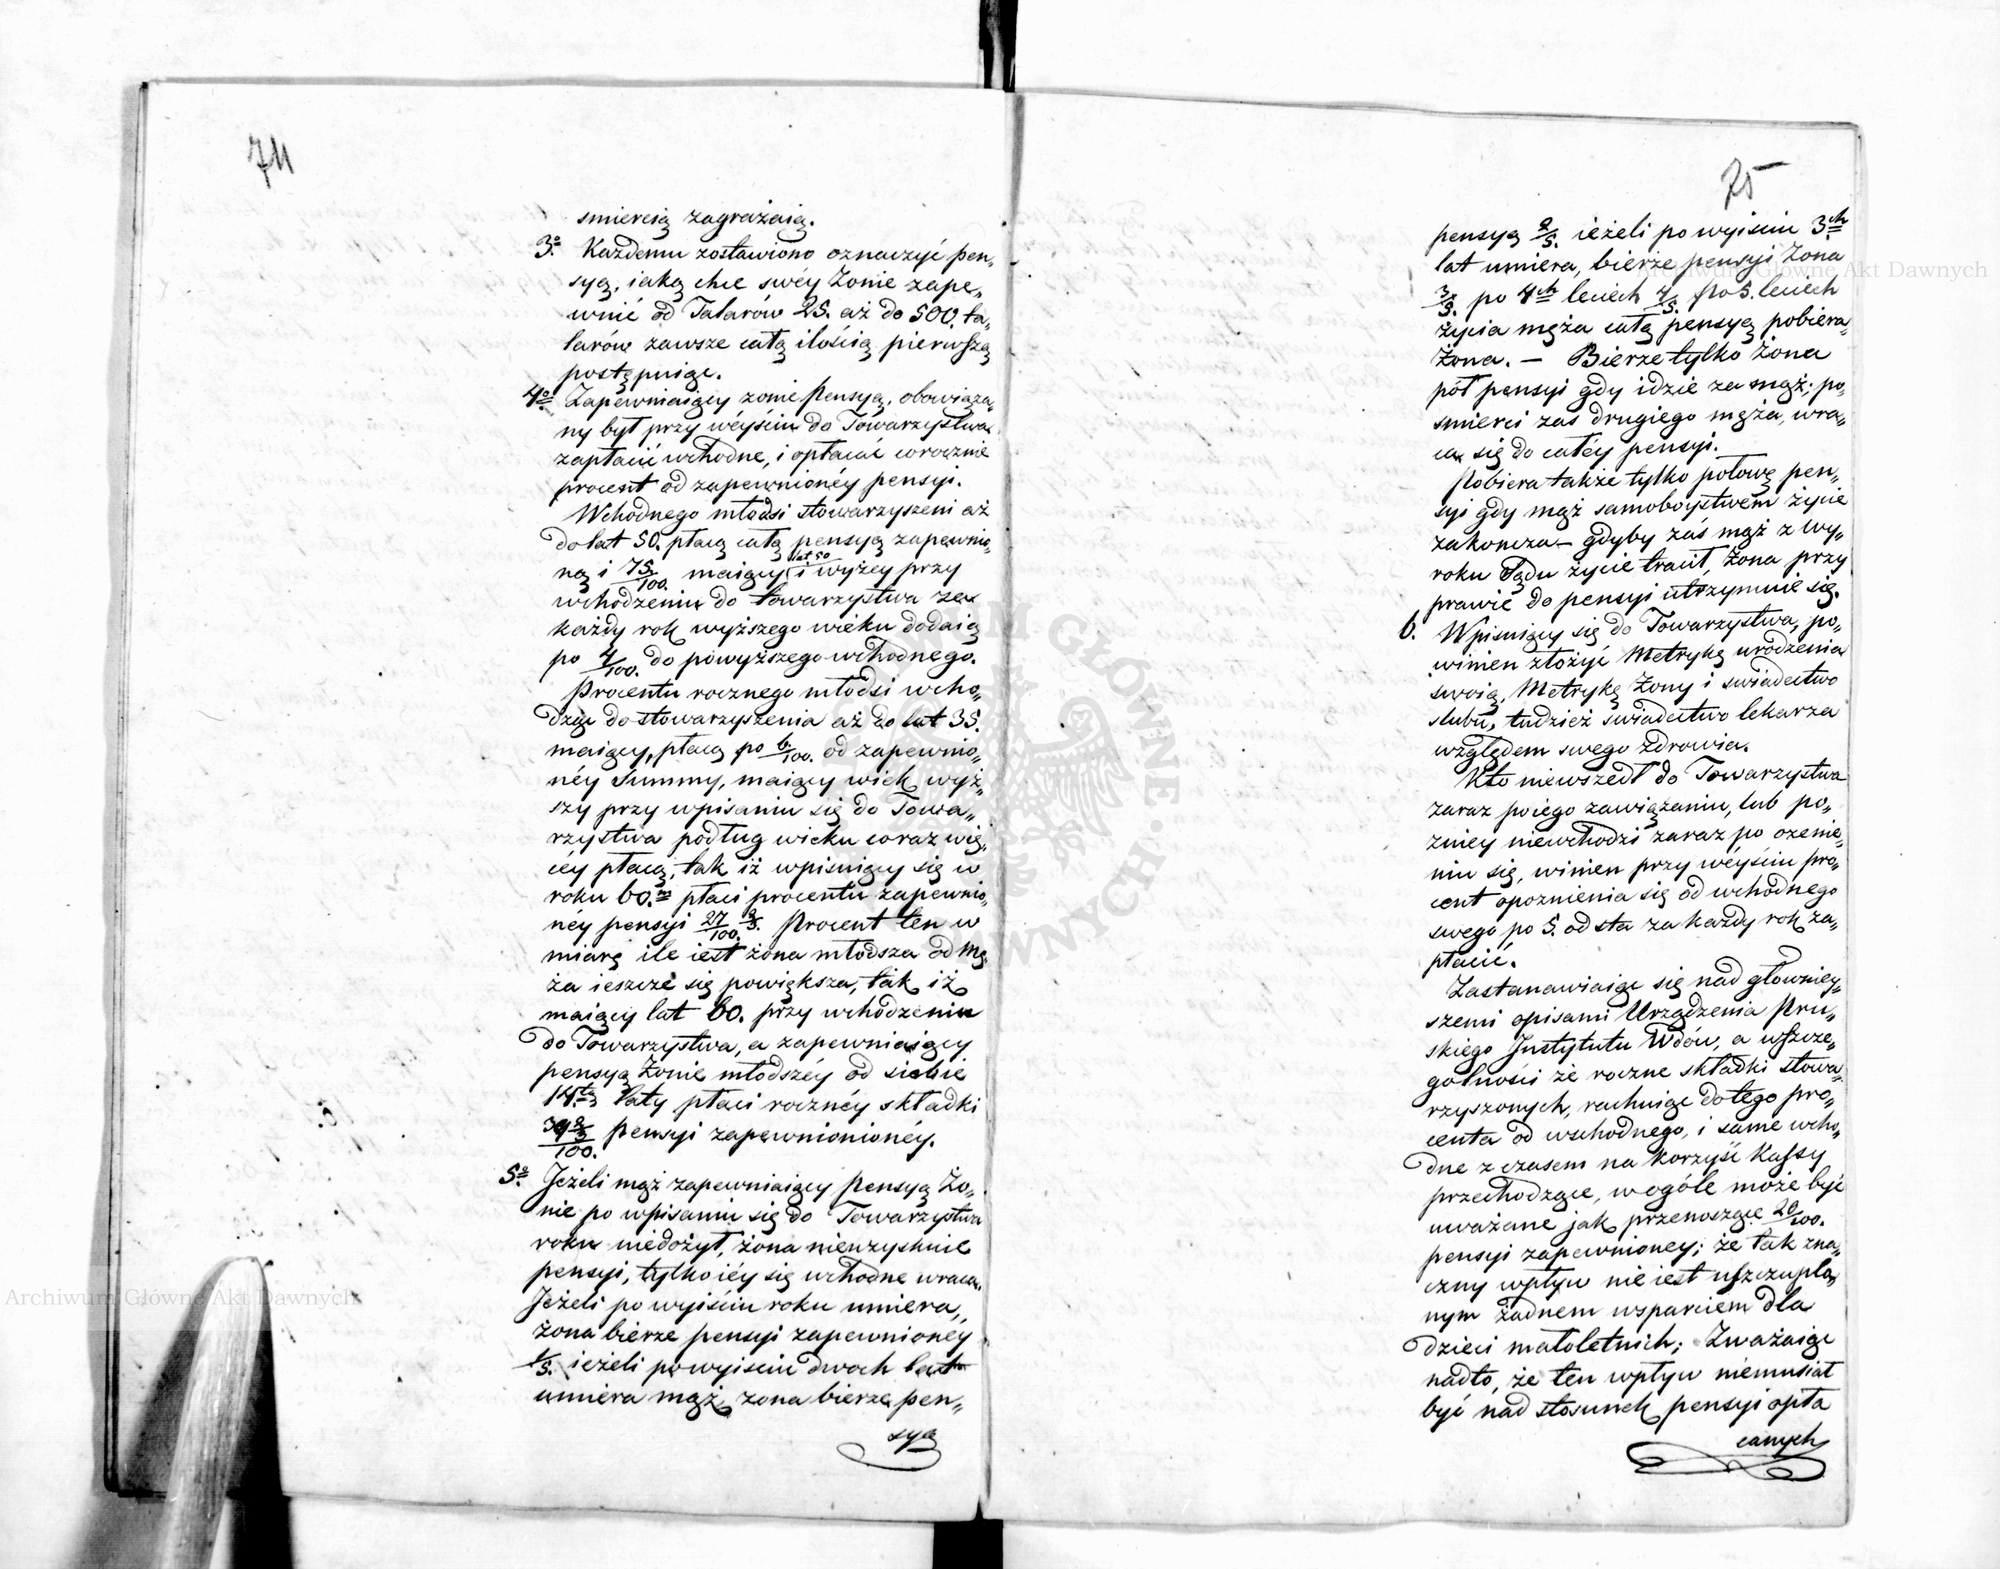 74
smiercią zagrażaią.
3o. Każdemu zostawiono oznaczyć pen„
syą, iaką chce swéy Żonie zape„
wnić od Talarów 25. aż do 500. ta„
larów zawsze całą ilością pierwszą
postępuiąc.
4o. Zapewniaiący zonie Pensyą, obowiąza„
ny był przy wéyściu do Towarzystwa
zapłacić wchodne, i opłacać corocznie
procent od zapewnionéy pensyi.
Wchodnego młodsi stowarzyszeni aż
do lat 50. płacą całą pensyą zapewnio„
ną i 75/100. maiący lat 50 i wyżey przy
wchodzeniu do towarzystwa za
każdy rok wyższego wieku dodaią
po 4/100. do powyższego wchodnego.
Procentu rocznego młodsi wcho„
dząc do stowarzyszenia aż do lat 35.
maiący, płacą po 6/100. od zapewnio„
néy Summy, maiący wiek wyż„
szy przy wpisaniu się do Towa„
rzystwa podług wieku coraz wię„
céy płacą, tak iż wpisuiący się w
roku 60.m płaci procentu zapewnio„
néy pensyi 27/100. 2/3. Procent ten w
miarę ile iest żona młodsza od Mę„
ża ieszcze się powiększa, tak iż
maiący lat 60. przy wchodzeniu
do Towarzystwa, a zapewniaiący
pensyą Żonie młodszéy od siebie
14tą laty płaci rocznéy składki
39 2/3/100. Pensyi zapewnionionéy.
5o. Jeżeli mąż zapewniaiący Pensyą Żo„
nie po wpisaniu się do Towarzystwa
roku niedożył, żona nieuzyskuie
pensyi, tylko iéy się wchodne wraca.
Jeżeli po wyiściu roku umiera,
żona bierze pensyi zapewnioney
1/5. ieżeli po wyisciu dwoch lat
umiera mąż, zona bierze pen„
syą
75
pensyą 2/5. ieżeli po wyisciu 3ch
lat umiera, bierze pensyi Żona
3/5. po 4ch leciech 4/5. Po 5. leciech
życia męża całą pensyą pobiera
Żona. — Bierze tylko Żona
pół pensyi gdy idzie za mąż; po„
smierci zaś drugiego męża, wra„
ca się do całéy pensyi.
Pobiera także tylko połowę pen„
syi gdy mąż samobóystwem życie
zakończa — gdyby zaś mąż z wy„
roku Sądu życie tracił, Żona przy
prawie do pensyi utrzymuie się.
6. Wpisuiący się do Towarzystwa, po„
winien złożyć Metrykę urodzenia
swoią, Metrykę Żony i swiadectwo
slubu, tudzież swiadectwo lekarza
względem swego zdrowia.
Kto niewszedł do Towarzystwa
zaraz po iego zawiązaniu, lub po„
zniey niewchodzi zaraz po ozenie„
niu się, winien przy wéyściu pro„
cent opoznienia się od wchodnego
swego po 5. od sta za każdy rok za„
płacić.
Zastanawiaiąc się nad główniey„
szemi opisami Urządzenia Pru„
skiego Jnstytutu Wdów, a wszcze„
gólności że roczne składki stowa„
rzyszonych, rachuiąc do tego pro„
centa od wschodnego, i same wcho„
dne z czasem na korzyść Kassy
przechodzące, w ogóle może być
uważane jak przenoszące 20/100.
pensyi zapewnioney; że tak zna„
czny wpływ nie iest uszczuplo„
nym żadnem wsparciem dla
dzieci małoletnich; Zważaiąc
nadto, że ten wpływ niemusiał
być nad stosunek pensyi opła
canych
Archiwum Główne Akt Dawnych
Archiwum Główne Akt Dawnych